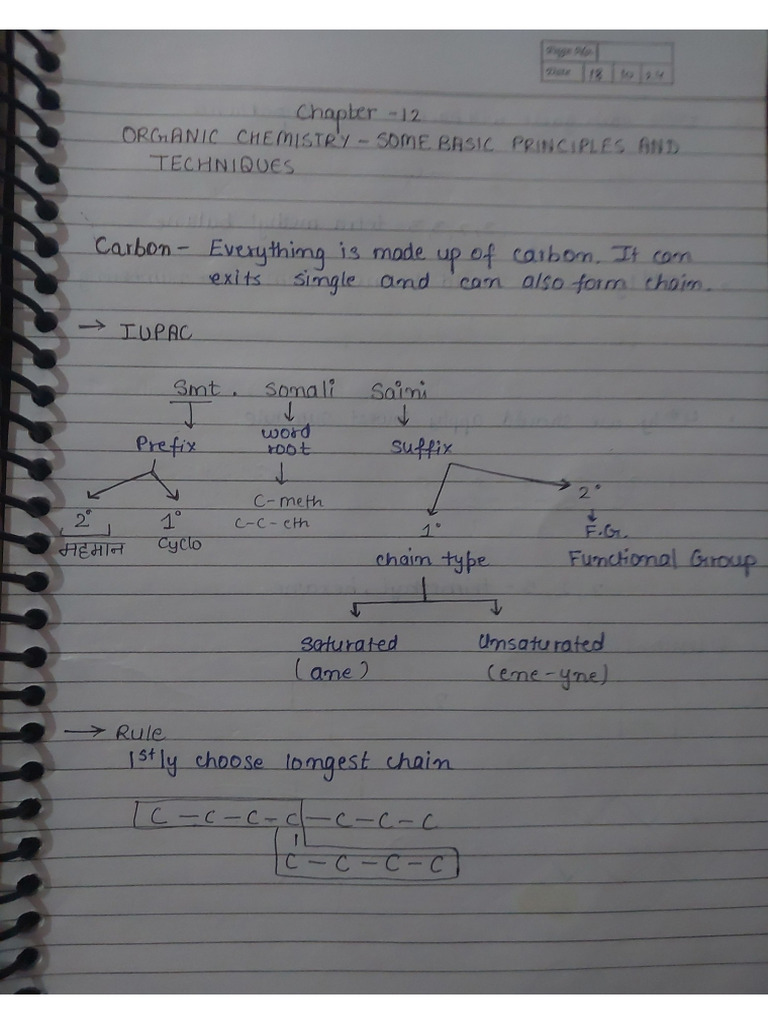 Page No.
Date 18
Chapter - 12
ORGANIC CHEMISTRY - SOME BASIC PRINCIPLES AND
TECHNIQUES
Carbon - Everything is made up of carbon. It can
exits single and can also form chain.
→ IUPAC
Smt. Somali Saini
Prefix word root Suffix
C-meth
C-C-eth
2° 1° 1° 2°
महमान Cyclo F.G.
chain type Functional Group
Saturated Unsaturated
(ane) (ene-yne)
→ Rule
1stly choose longest chain
C - C - C - C - C - C - C
C - C - C - C